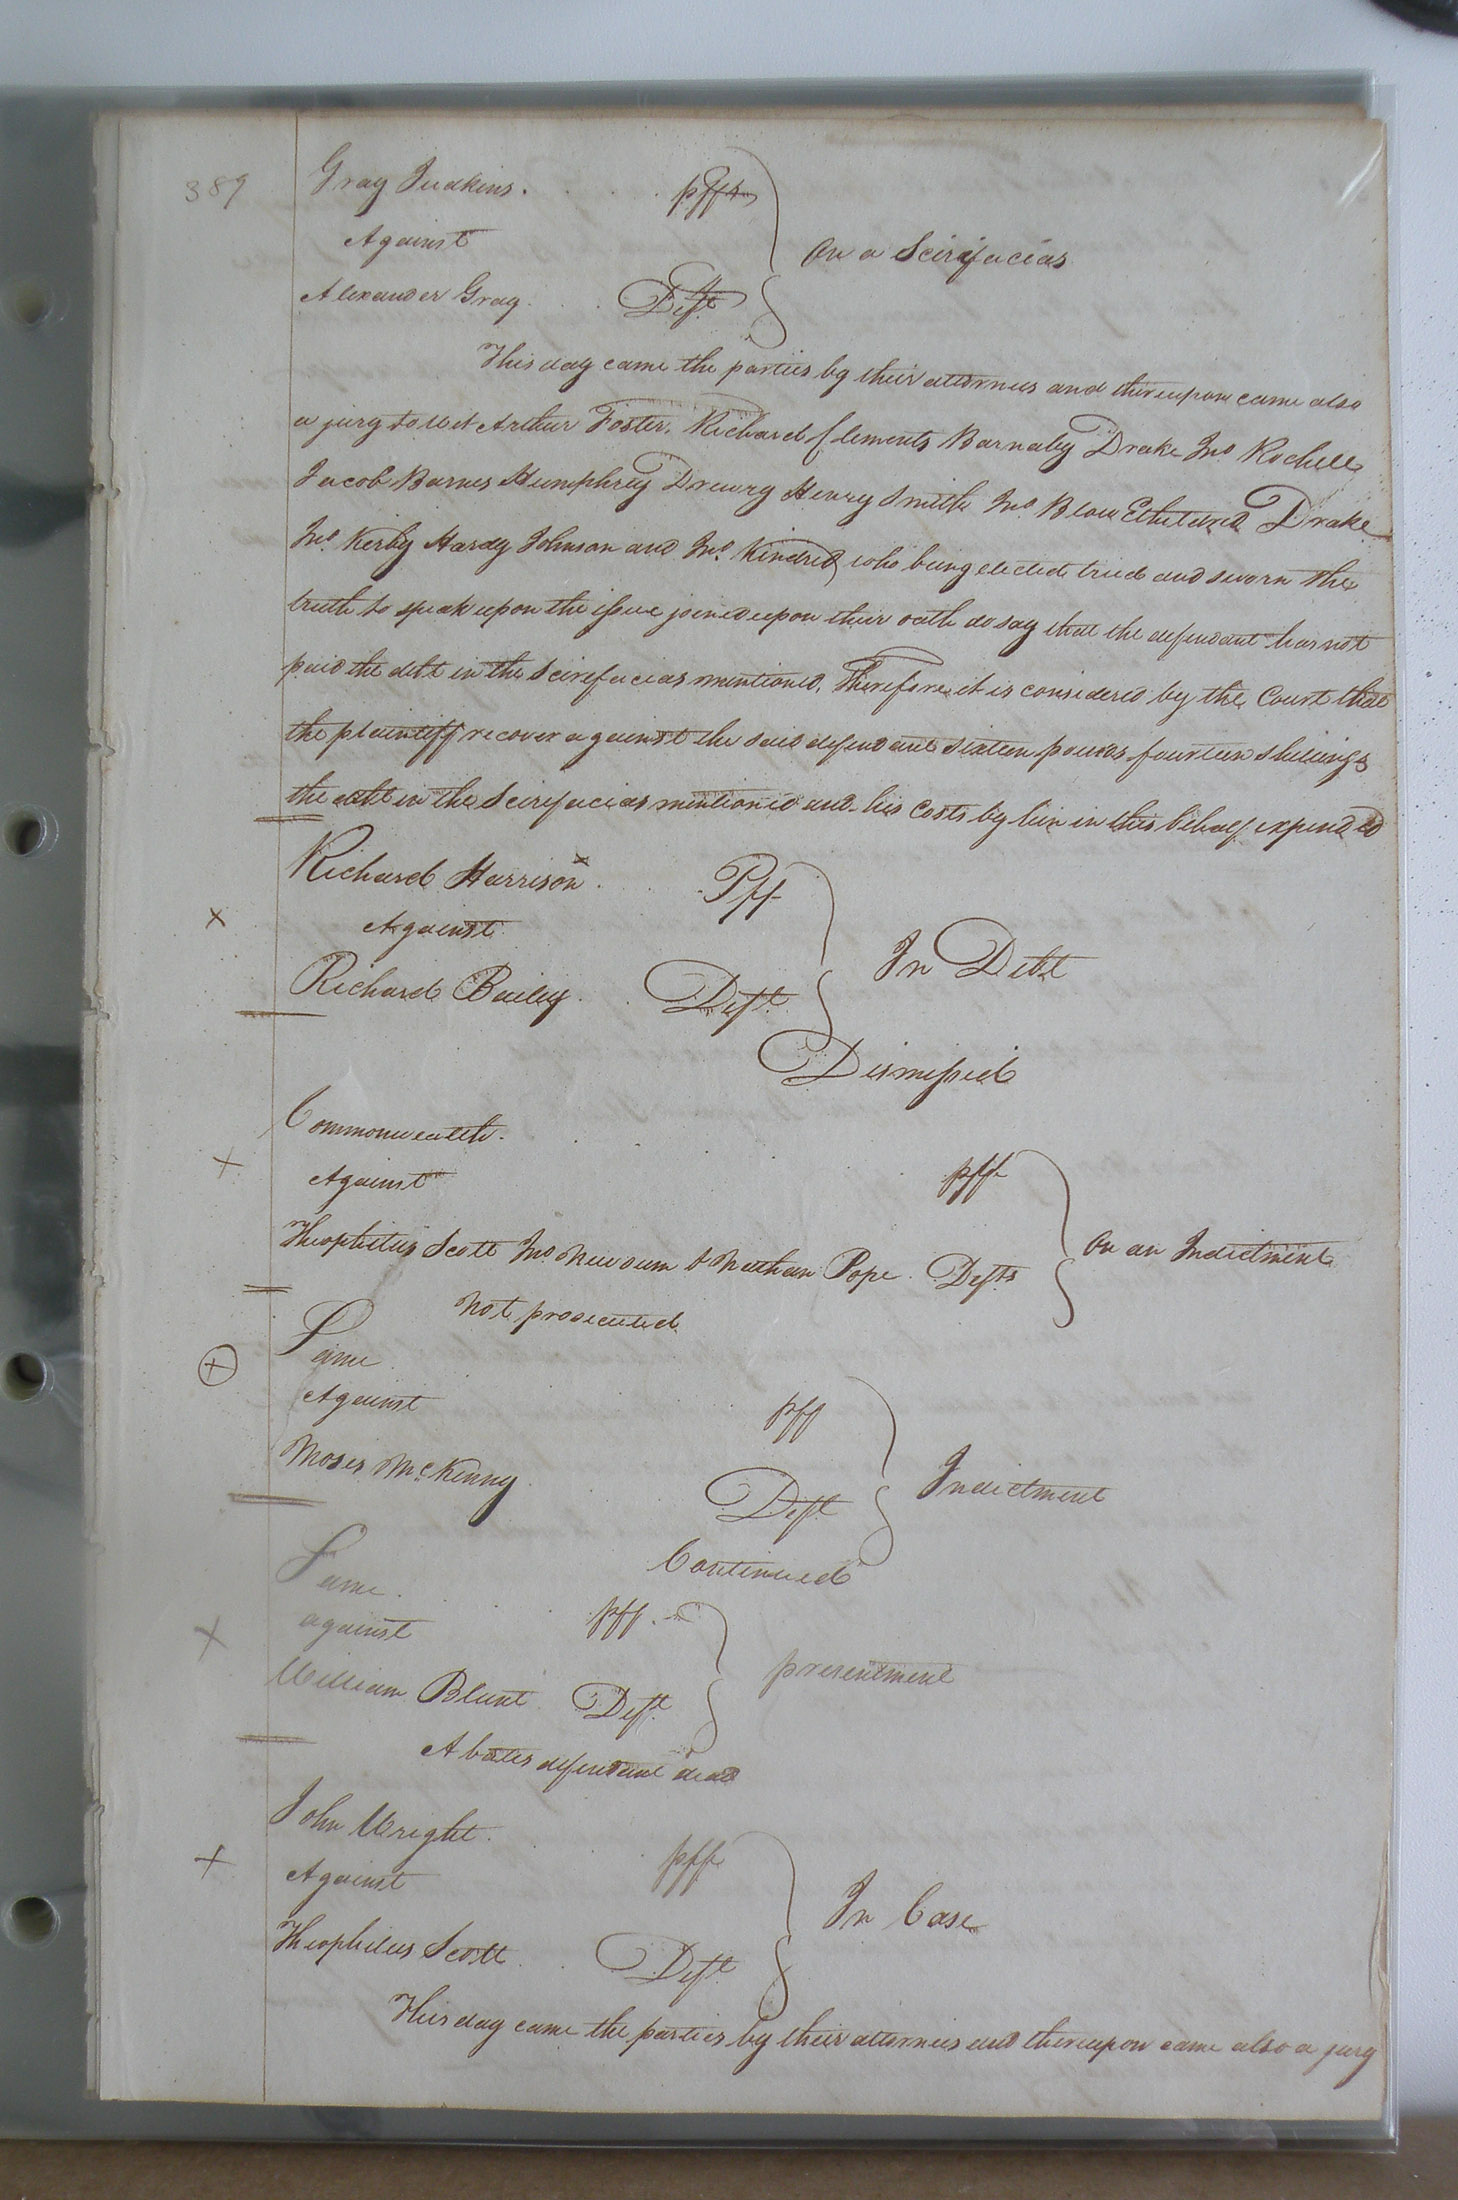 389
Gray Judkins. pff
Against
On a Scirefacias
Alexander Gray. Deft
This day came the parties by their attornies and thereupon came also
a jury to wit Arthur Foster, Richard Clements Barnaby Drake Jno Rochell
Jacob Barnes Humphrey Drewry Henry Smith Jno Blow Etheldred Drake
Jno. Kerby Hardy Johnson and Jno. Kindred who being elected tried and sworn the
truth to speak upon the issue joined upon their oath do say that the defendant has not
paid the debt in the Scirefacias mentioned, Therefore it is considered by the Court that
the plaintiff recover against the said defendant sixteen pounds fourteen shillings
the debt in the Scirefacias mentioned and his Costs by him in this behalf expended
Richard Harrison. Pff
x Against
In Debt
Richard Bailey. Deft
Dismissed
Commonwealth.
x pff
Against
On an Indictment
Theophilus Scott Jno. Newsum & Nathan Pope. Defts
Not prosecuted
Same
+
Against pff
Moses McKenny
Indictment
Deft
Continued
Same.
x against pff.
presentment
William Blunt Deft.
Abates defendant dead
John Wright.
x Against pff
In Case
Theophilus Scott. Deft
This day came the parties by their attornies and thereupon came also a jury